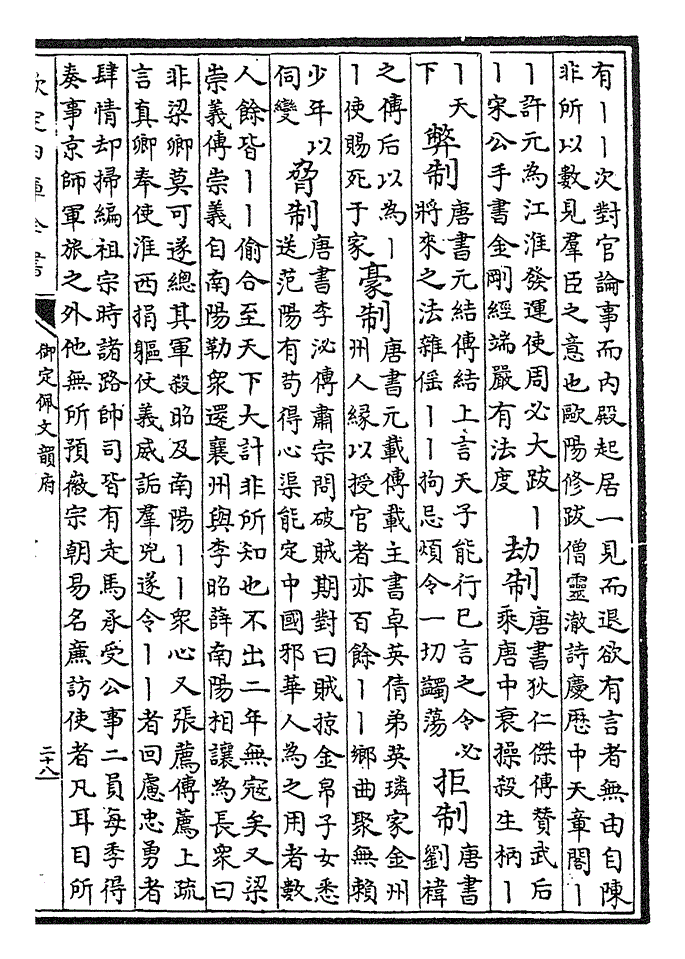 有丨丨次對官論事而内殿起居一見而退欲有言者無由自陳
非所以數見羣臣之意也歐陽修跋僧靈澈詩慶厯中天章閣丨
丨許元為江淮發運使周必大跋丨
丨宋公手書金剛經端嚴有法度
劫制
唐書狄仁傑傳贊武后
乘唐中衰操殺生柄丨
丨天
下
弊制
唐書元結傳結上言天子能行已言之令必
將來之法雜徭丨丨拘忌煩令一切蠲蕩
拒制
唐書
劉禕
之傳后以為丨
丨使賜死于家
豪制
唐書元載傳載主書卓英倩弟英璘家金州
州人緣以授官者亦百餘丨丨鄉曲聚無賴
少年以
伺變
脅制
唐書李泌傳肅宗問破賊期對曰賊掠金帛子女悉
送范陽有苟得心渠能定中國邪華人為之用者數
人餘皆丨丨偷合至天下大計非所知也不出二年無寇矣又梁
崇義傳崇義自南陽勒衆還襄州與李昭薛南陽相讓為長衆曰
非梁卿莫可遂總其軍殺昭及南陽丨丨衆心又張薦傳薦上疏
言真卿奉使淮西捐軀仗義威詬羣兇遂令丨丨者回慮忠勇者
肆情却掃編祖宗時諸路帥司皆有走馬承受公事二員每季得
奏事京師軍旅之外他無所預徽宗朝易名廉訪使者凡耳目所
欽定四庫全書
御定佩文韻府
二十八